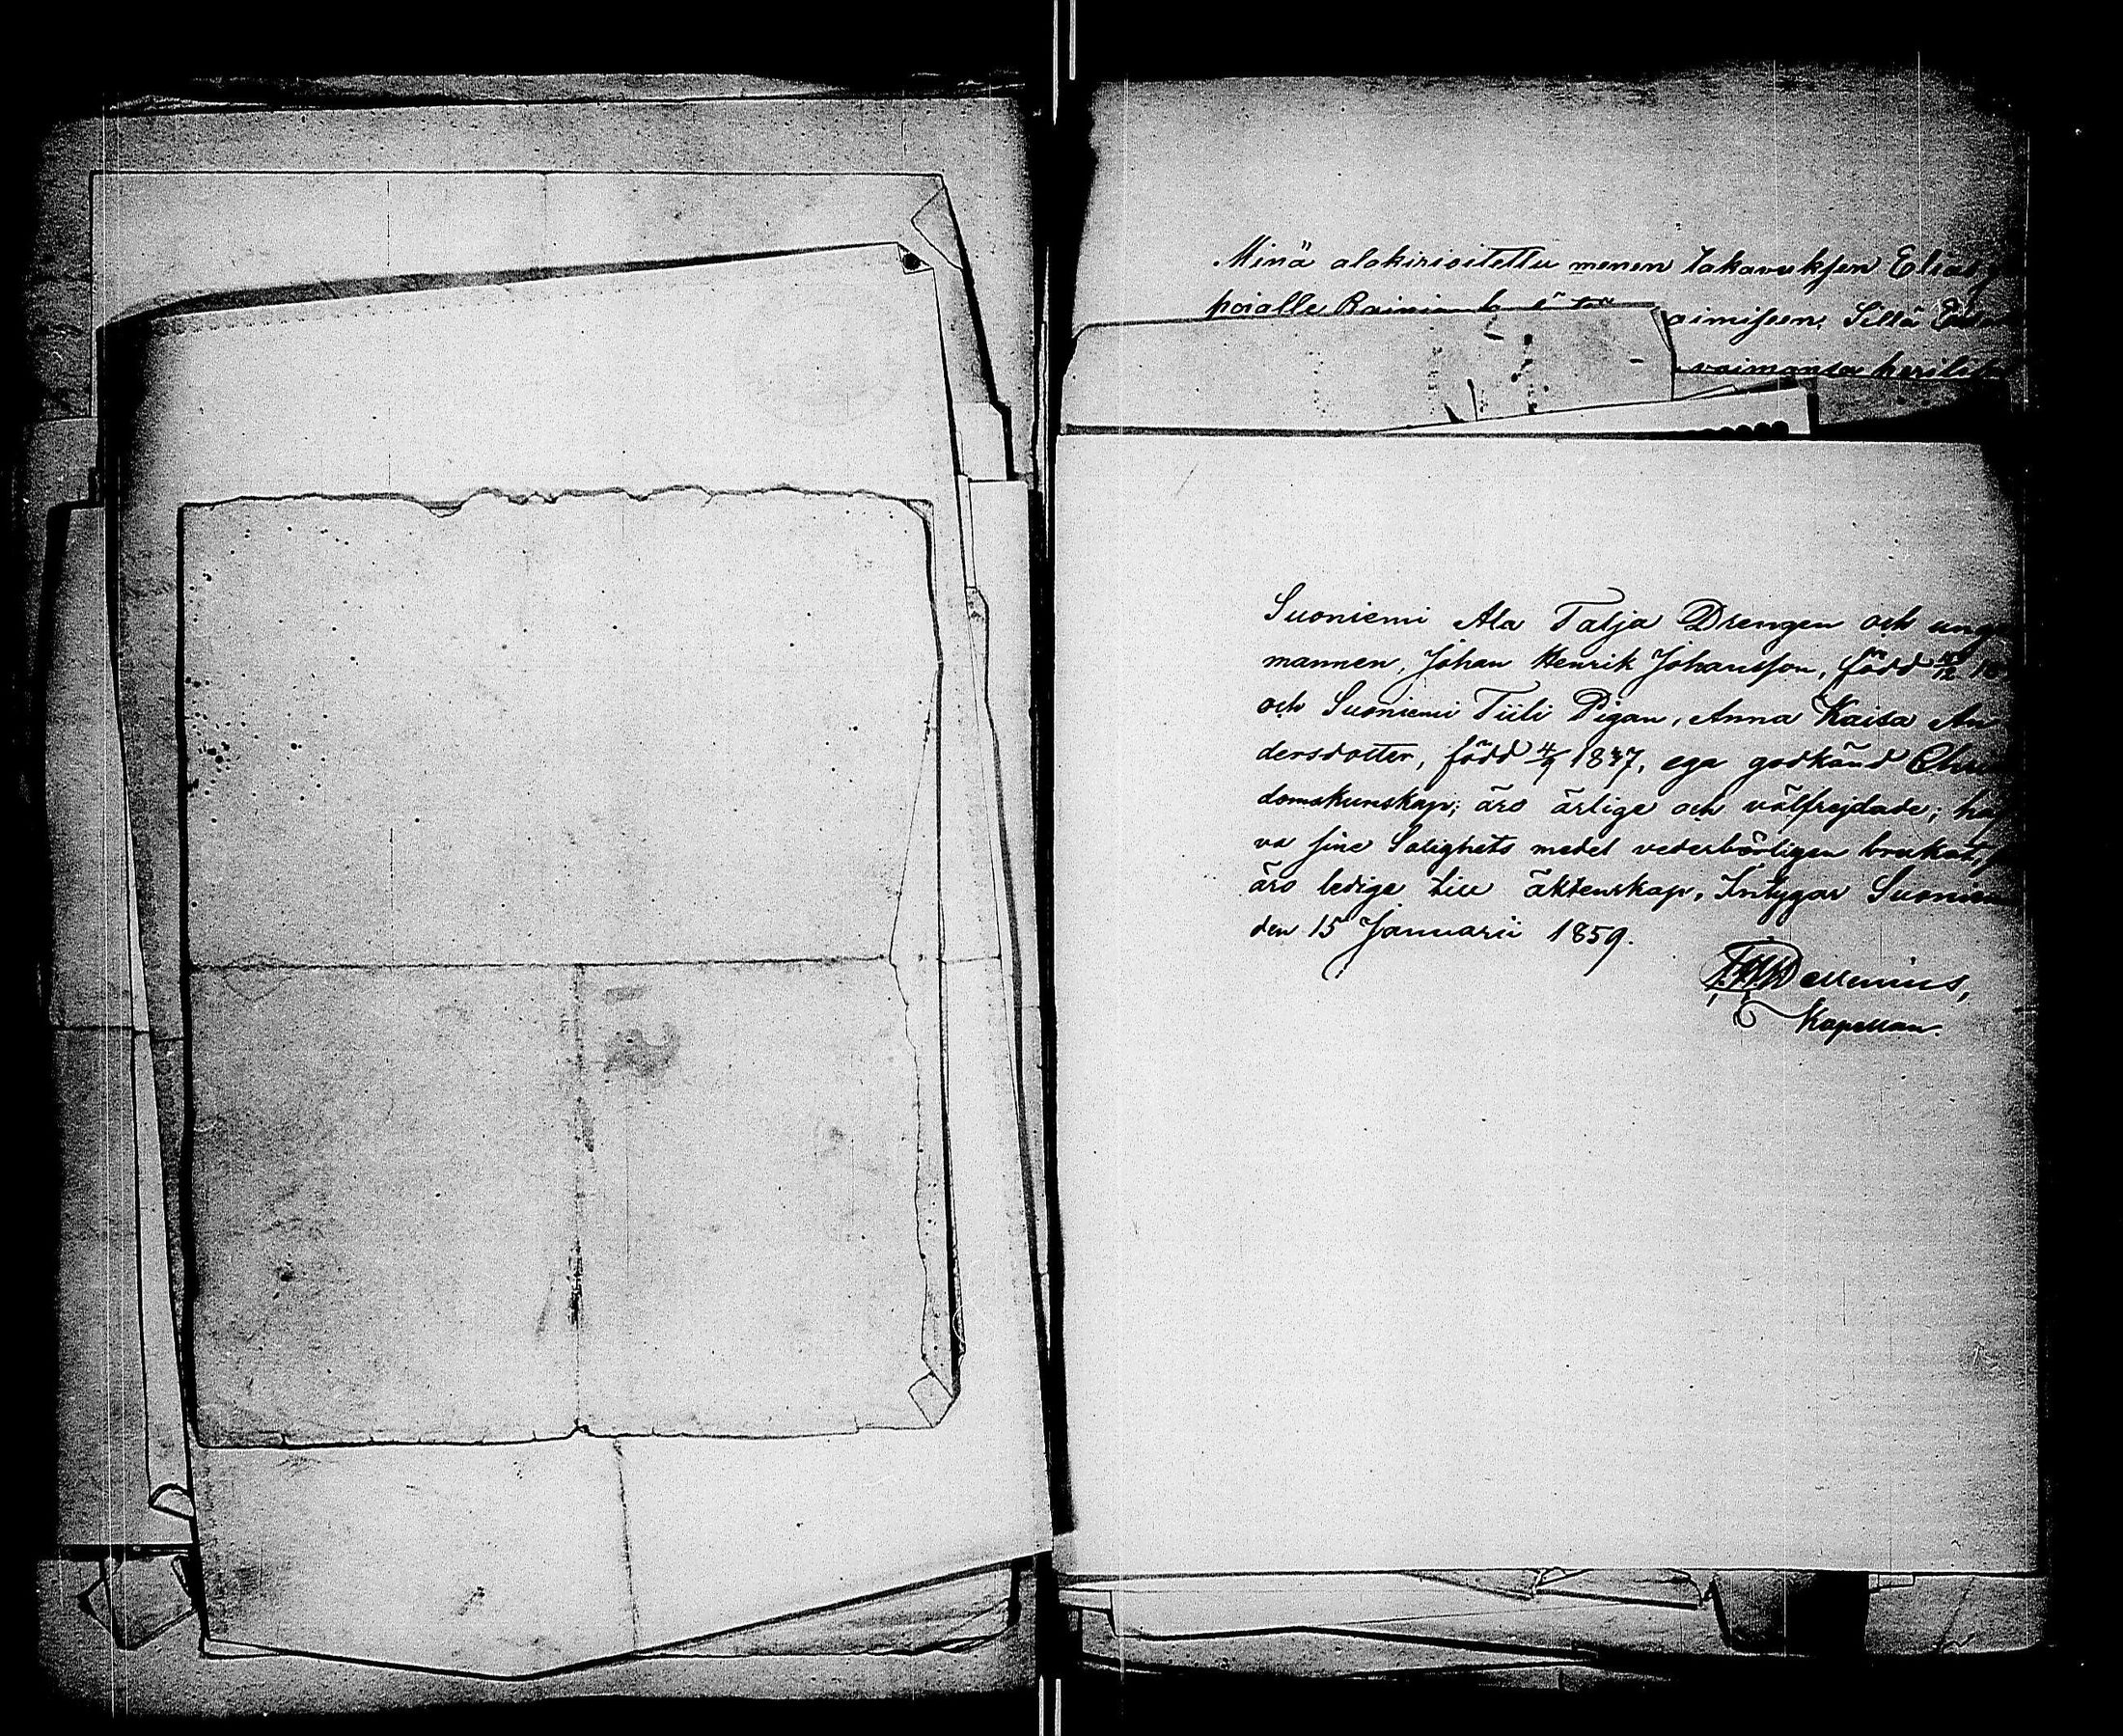 Minä alakirjoitettu menen takavuksen Elias
poialle
aimiseen. Sillä
vaimonsa
Suoniemi Ala Talja Drengen och unge
mannen, Johan Henrik Johansson, född
och Suoniemi Tiili Pigan, Anna Kaisa An
dersdotter, född 4/9 1837, ega godkänd Chris
domskunskap; äro ärlige och välfrejdade; haf
va sine Salighets medel vederbörligen brukat,
äro ledige till äktenskap, Intygar Suoniemi
den 15 Januarii 1859.
Dellenius,
Kapellan.